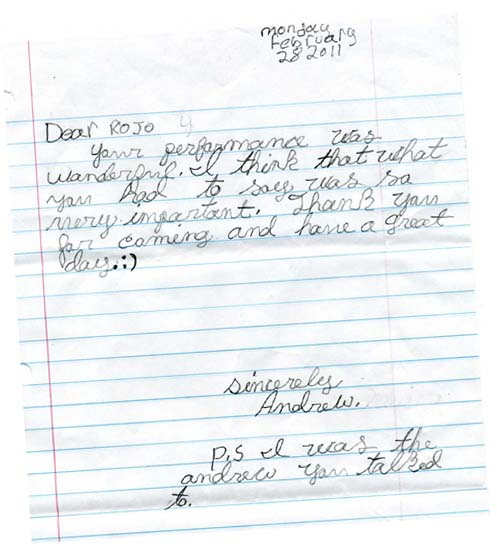 monday
February
28 2011
Dear ROJO
Your performance was
wanderful. I think that what
you had to say was so
very impartant. Thank you
for coming and have a great
day.:)
sincerely
Andrew.
P.S I was the
andrew you talked
to.